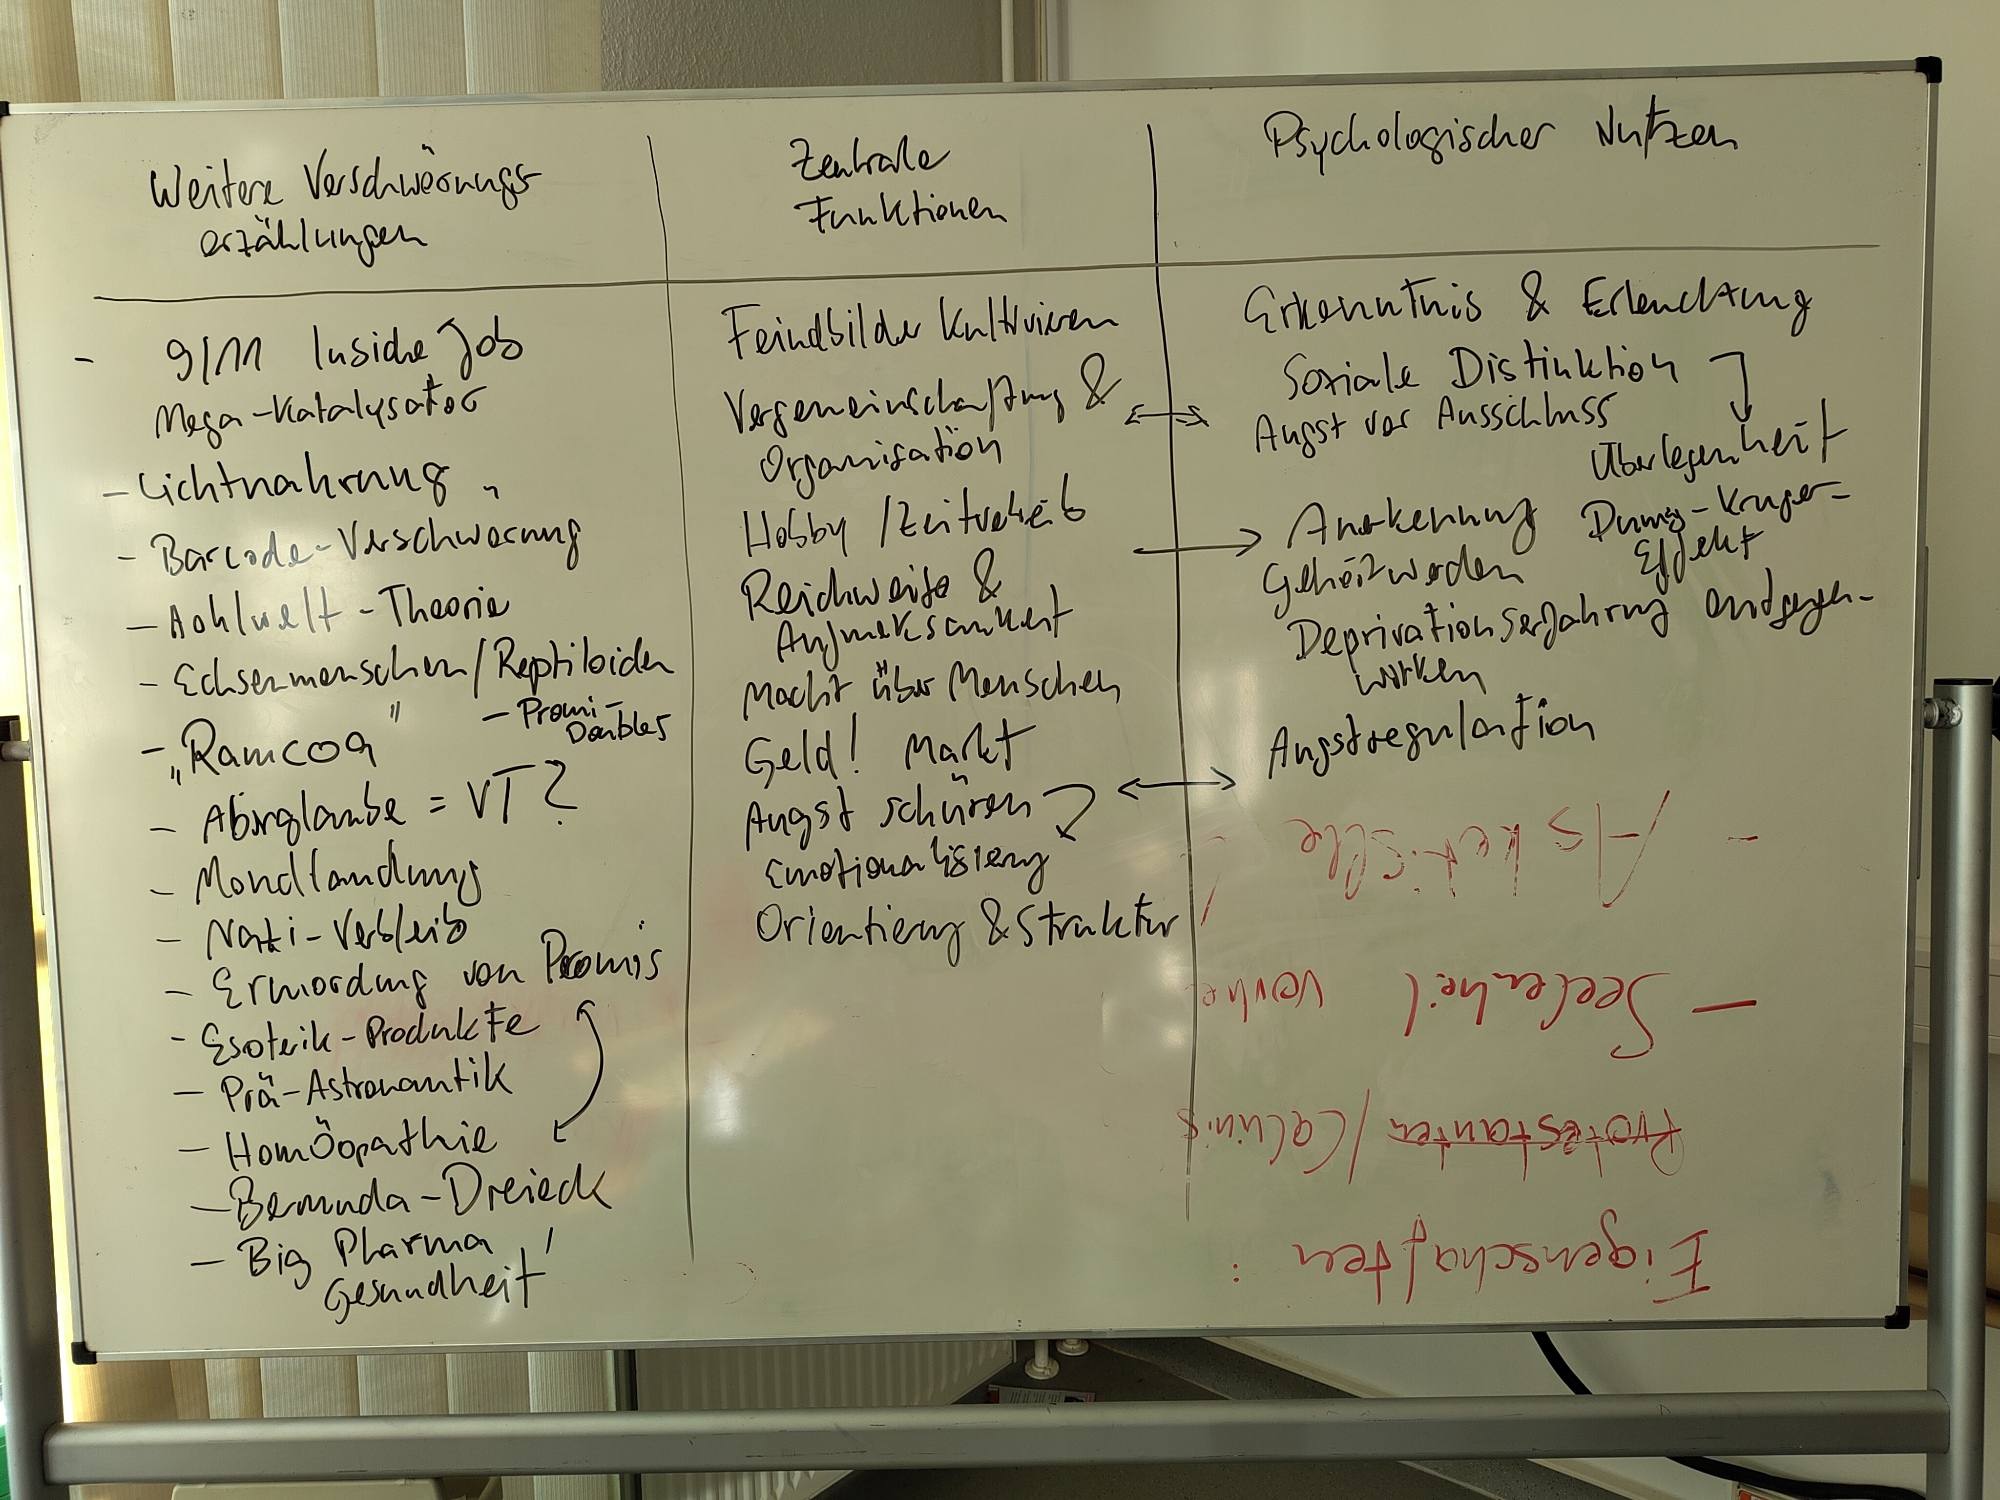 Weitere Verschwörungs
erzählungen
- 9/11 Inside Job
Mega-Katalysator
- Lichtnahrung
- Barcode-Verschwörung
- Hohlwelt-Theorie
- Echsenmenschen/Reptiloiden
- "Ramcoa" - Promi-
Doubles
- Aberglaube = VT?
- Mondlandung
- Nazi-Verbleib
- Ermordung von Promis
- Esoterik-Produkte
- Prä-Astronautik
- Homöopathie
- Bermuda-Dreieck
- Big Pharma /
Gesundheit
Zentrale
Funktionen
Feindbilder kultivieren
Vergemeinschaftung &
Organisation
Hobby/Zeitvertreib
Reichweite &
Aufmerksamkeit
Macht über Menschen
Geld! Markt
Angst schüren
Emotionalisierung
Orientierung & Struktur
Psychologischer Nutzen
Erkenntnis & Erleuchtung
Soziale Distinktion
Angst vor Ausschluss
Überlegenheit
Anerkennung Dunning-Kruger-
Effekt
Gehört werden
Deprivationserfahrung entgegen-
wirken
Angstregulation
Eigenschaften :
Protestanten / Calvinis
- Seelenheil vorhe
- Asketische